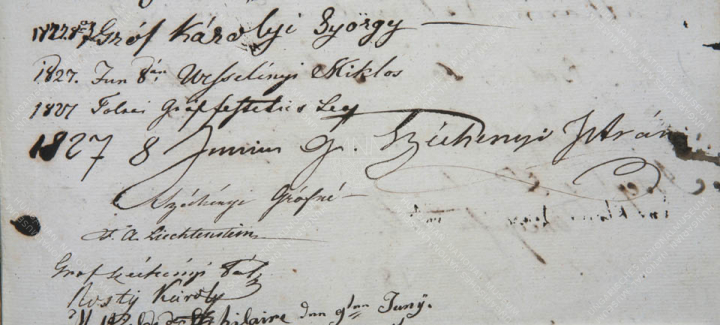 Gróf Károlyi György
1827. Jun 8án Wesselényi Miklos
1827 Tolnai Gróf Festetics Leo
1827 8 Junius G. Széchenyi István
Széchényi Grófné
F. A. Liechtenstein
Grof Széchényi Pál
Rosty Károly
hilaire den 9ten Juny.